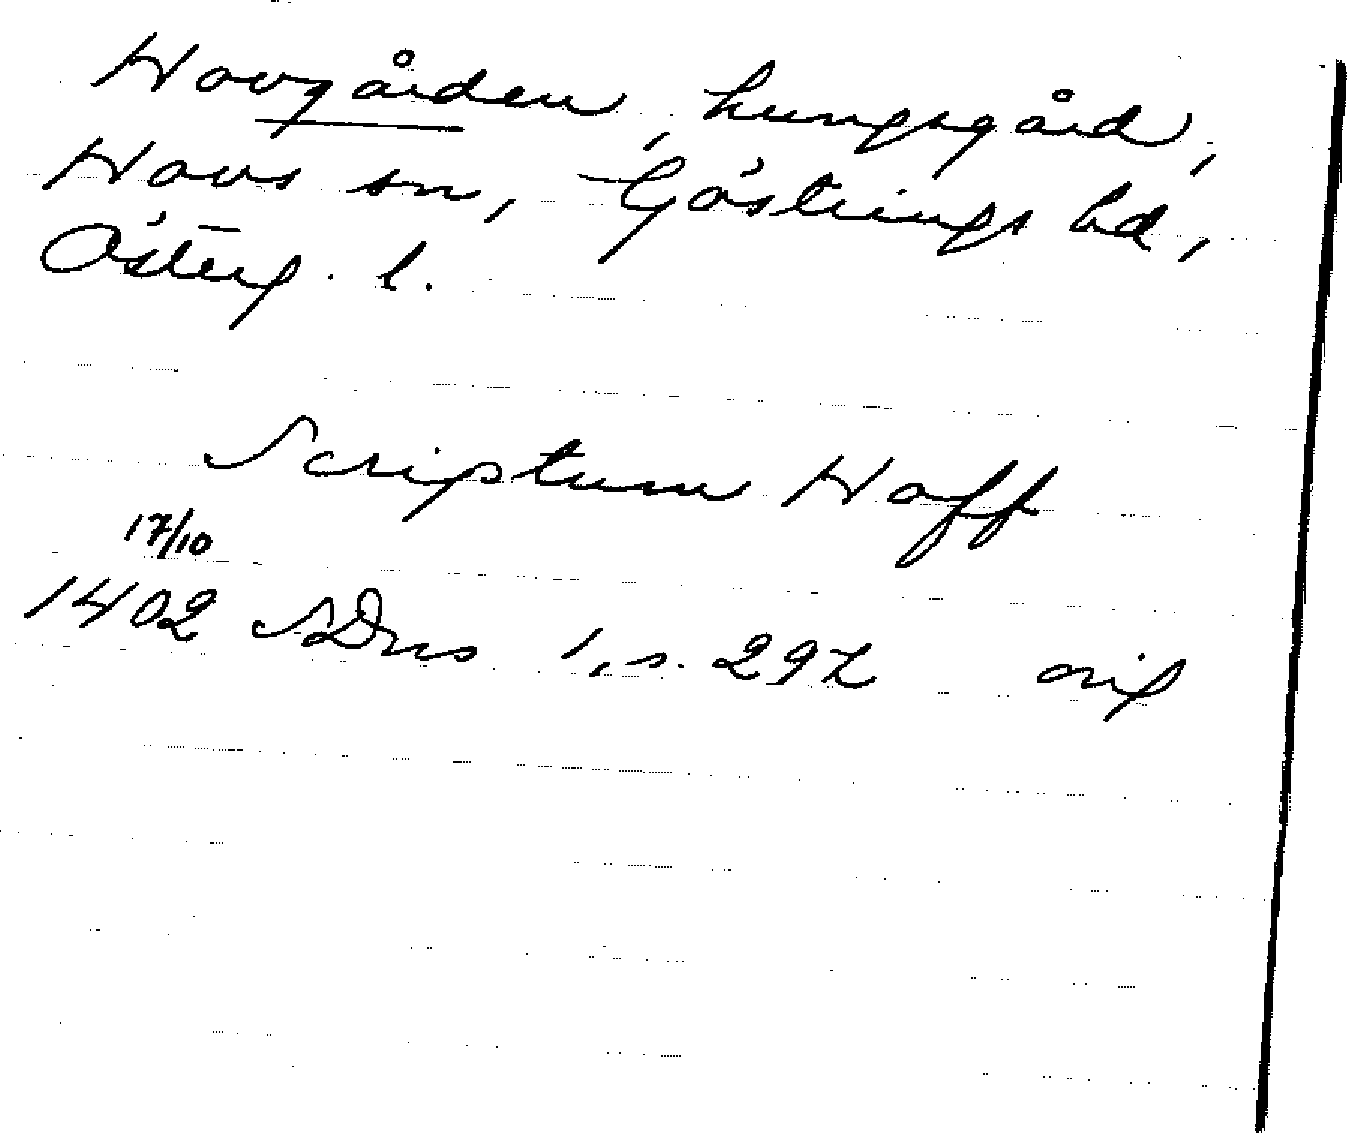 Hovgården, kungsgård,
Hovs sn, Göstrings hd,
Österg. l.
Scriptum Hoff
17/10
1402 SDns 1, s. 297 orig